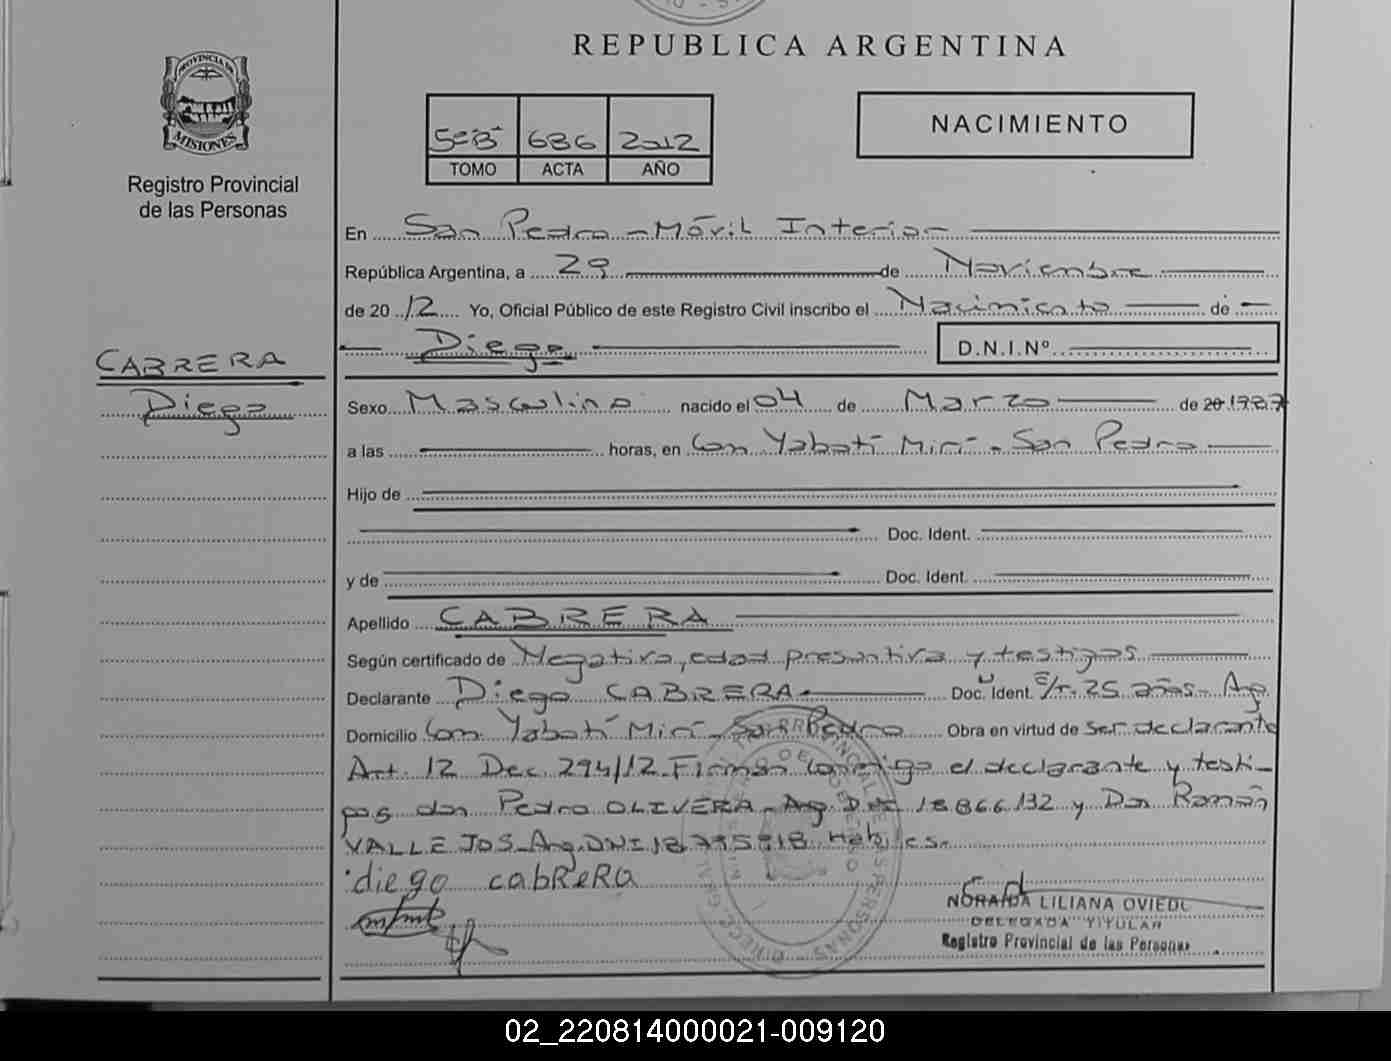 REPUBLICA ARGENTINA
PROVINCIA DE
MISIONES
Registro Provincial
de las Personas
686 2012
TOMO ACTA AÑO
NACIMIENTO
En San Pedro - Móvil Interior
República Argentina, a 29 de Noviembre
de 2012 Yo, Oficial Público de este Registro Civil inscribo el Nacimiento de
Diego D.N.I.Nº
CABRERA
Diego
Sexo Masculino nacido el 04 de Marzo de 20 1987
a las horas, en Com Yabotí Mirí - San Pedro
Hijo de
Doc. Ident.
y de Doc. Ident.
Apellido CABRERA
Según certificado de Negativa, edad presuntiva y testigos
Declarante Diego CABRERA Doc. Ident. S/T. 25 años - Arg.
Domicilio Com. Yabotí Mirí - San Pedro Obra en virtud de ser declarante
Art. 12 Dec. 294/12. Firman conmigo el declarante y testi-
gos don Pedro OLIVERA - Arg. DNI 18866132 y Don Ramón
VALLEJOS - Arg. DNI Hábiles.
diego cabReRa
NORAIDA LILIANA OVIEDO
DELEGADA TITULAR
Registro Provincial de las Personas
02_220814000021-009120